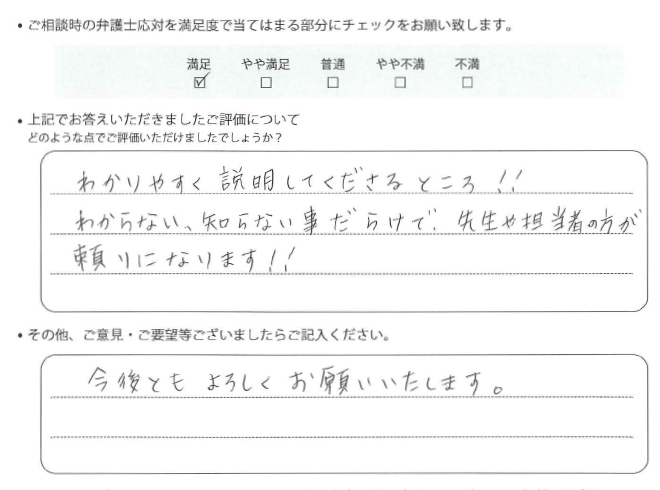 • ご相談時の弁護士応対を満足度で当てはまる部分にチェックをお願い致します。
満足 やや満足 普通 やや不満 不満
☑ ☐ ☐ ☐ ☐
• 上記でお答えいただきましたご評価について
どのような点でご評価いただけましたでしょうか？
わかりやすく説明してくださるところ!!
わからない、知らない事だらけで、先生や担当者の方が
頼りになります!!
• その他、ご意見・ご要望等ございましたらご記入ください。
今後ともよろしくお願いいたします。